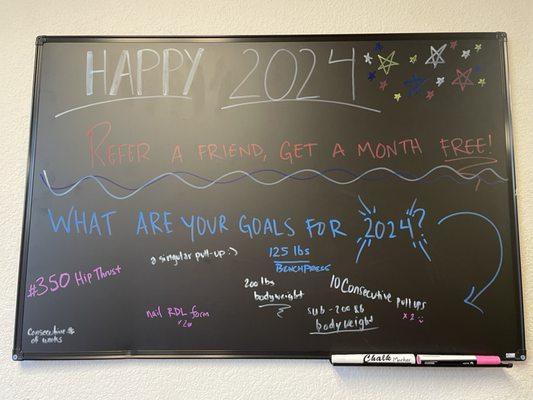 HAPPY 2024
REFER A FRIEND, GET A MONTH FREE!
WHAT ARE YOUR GOALS FOR 2024?
a singular pull-up :)
125 lbs
BENCHPRESS
#350 Hip Thrust
200 lbs
bodyweight
10 Consecutive Pull ups
x 2 :)
sub-200 lb
bodyweight
nail RDL form
Consecutive #
of weeks
Chalk Marker